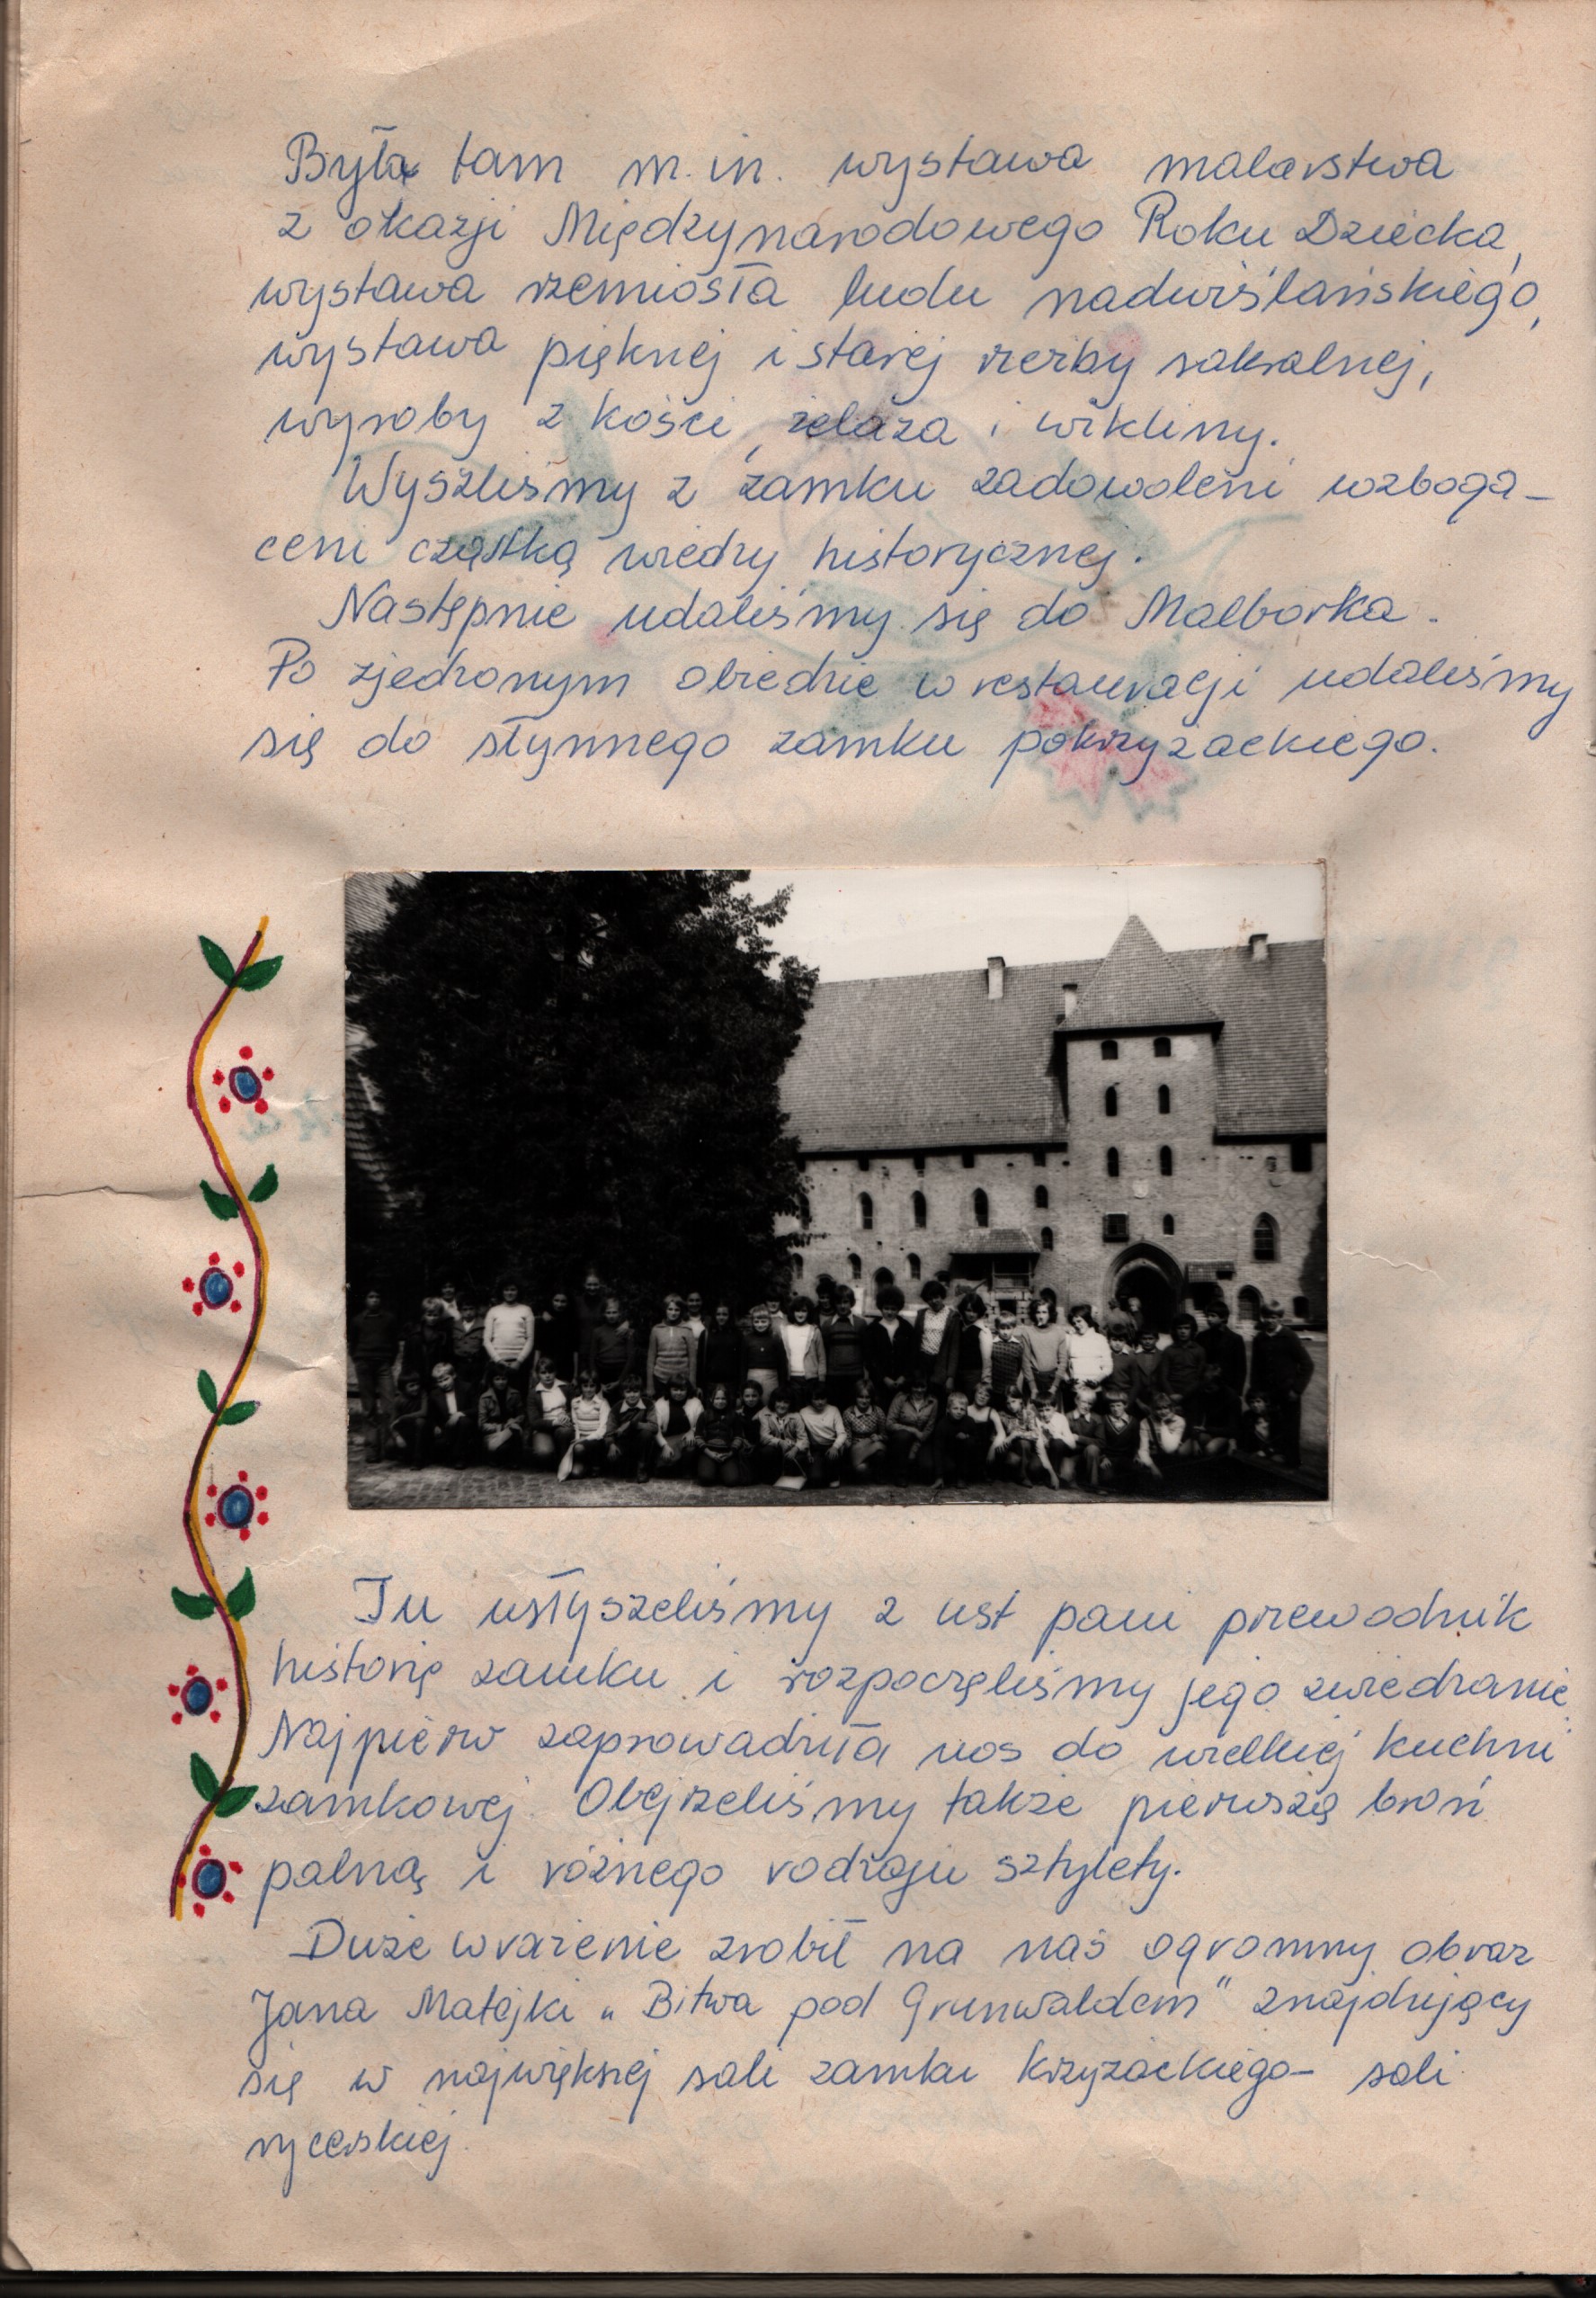 Była tam m.in. wystawa malarstwa
z okazji Międzynarodowego Roku Dziecka,
wystawa rzemiosła ludu nadwiślańskiego,
wystawa pięknej i starej rzeźby sakralnej,
wyroby z kości, żelaza i wikliny.
Wyszliśmy z zamku zadowoleni wzboga-
ceni cząstką wiedzy historycznej.
Następnie udaliśmy się do Malborka.
Po zjedzonym obiedzie w restauracji udaliśmy
się do słynnego zamku pokrzyżackiego.
Tu usłyszeliśmy z ust pani przewodnik
historię zamku i rozpoczęliśmy jego zwiedzanie.
Najpierw zaprowadziła nas do wielkiej kuchni
zamkowej. Obejrzeliśmy także pierwszą broń
palną i różnego rodzaju sztylety.
Duże wrażenie zrobił na nas ogromny obraz
Jana Matejki „Bitwa pod Grunwaldem" znajdujący
się w największej sali zamku krzyżackiego- sali
rycerskiej.